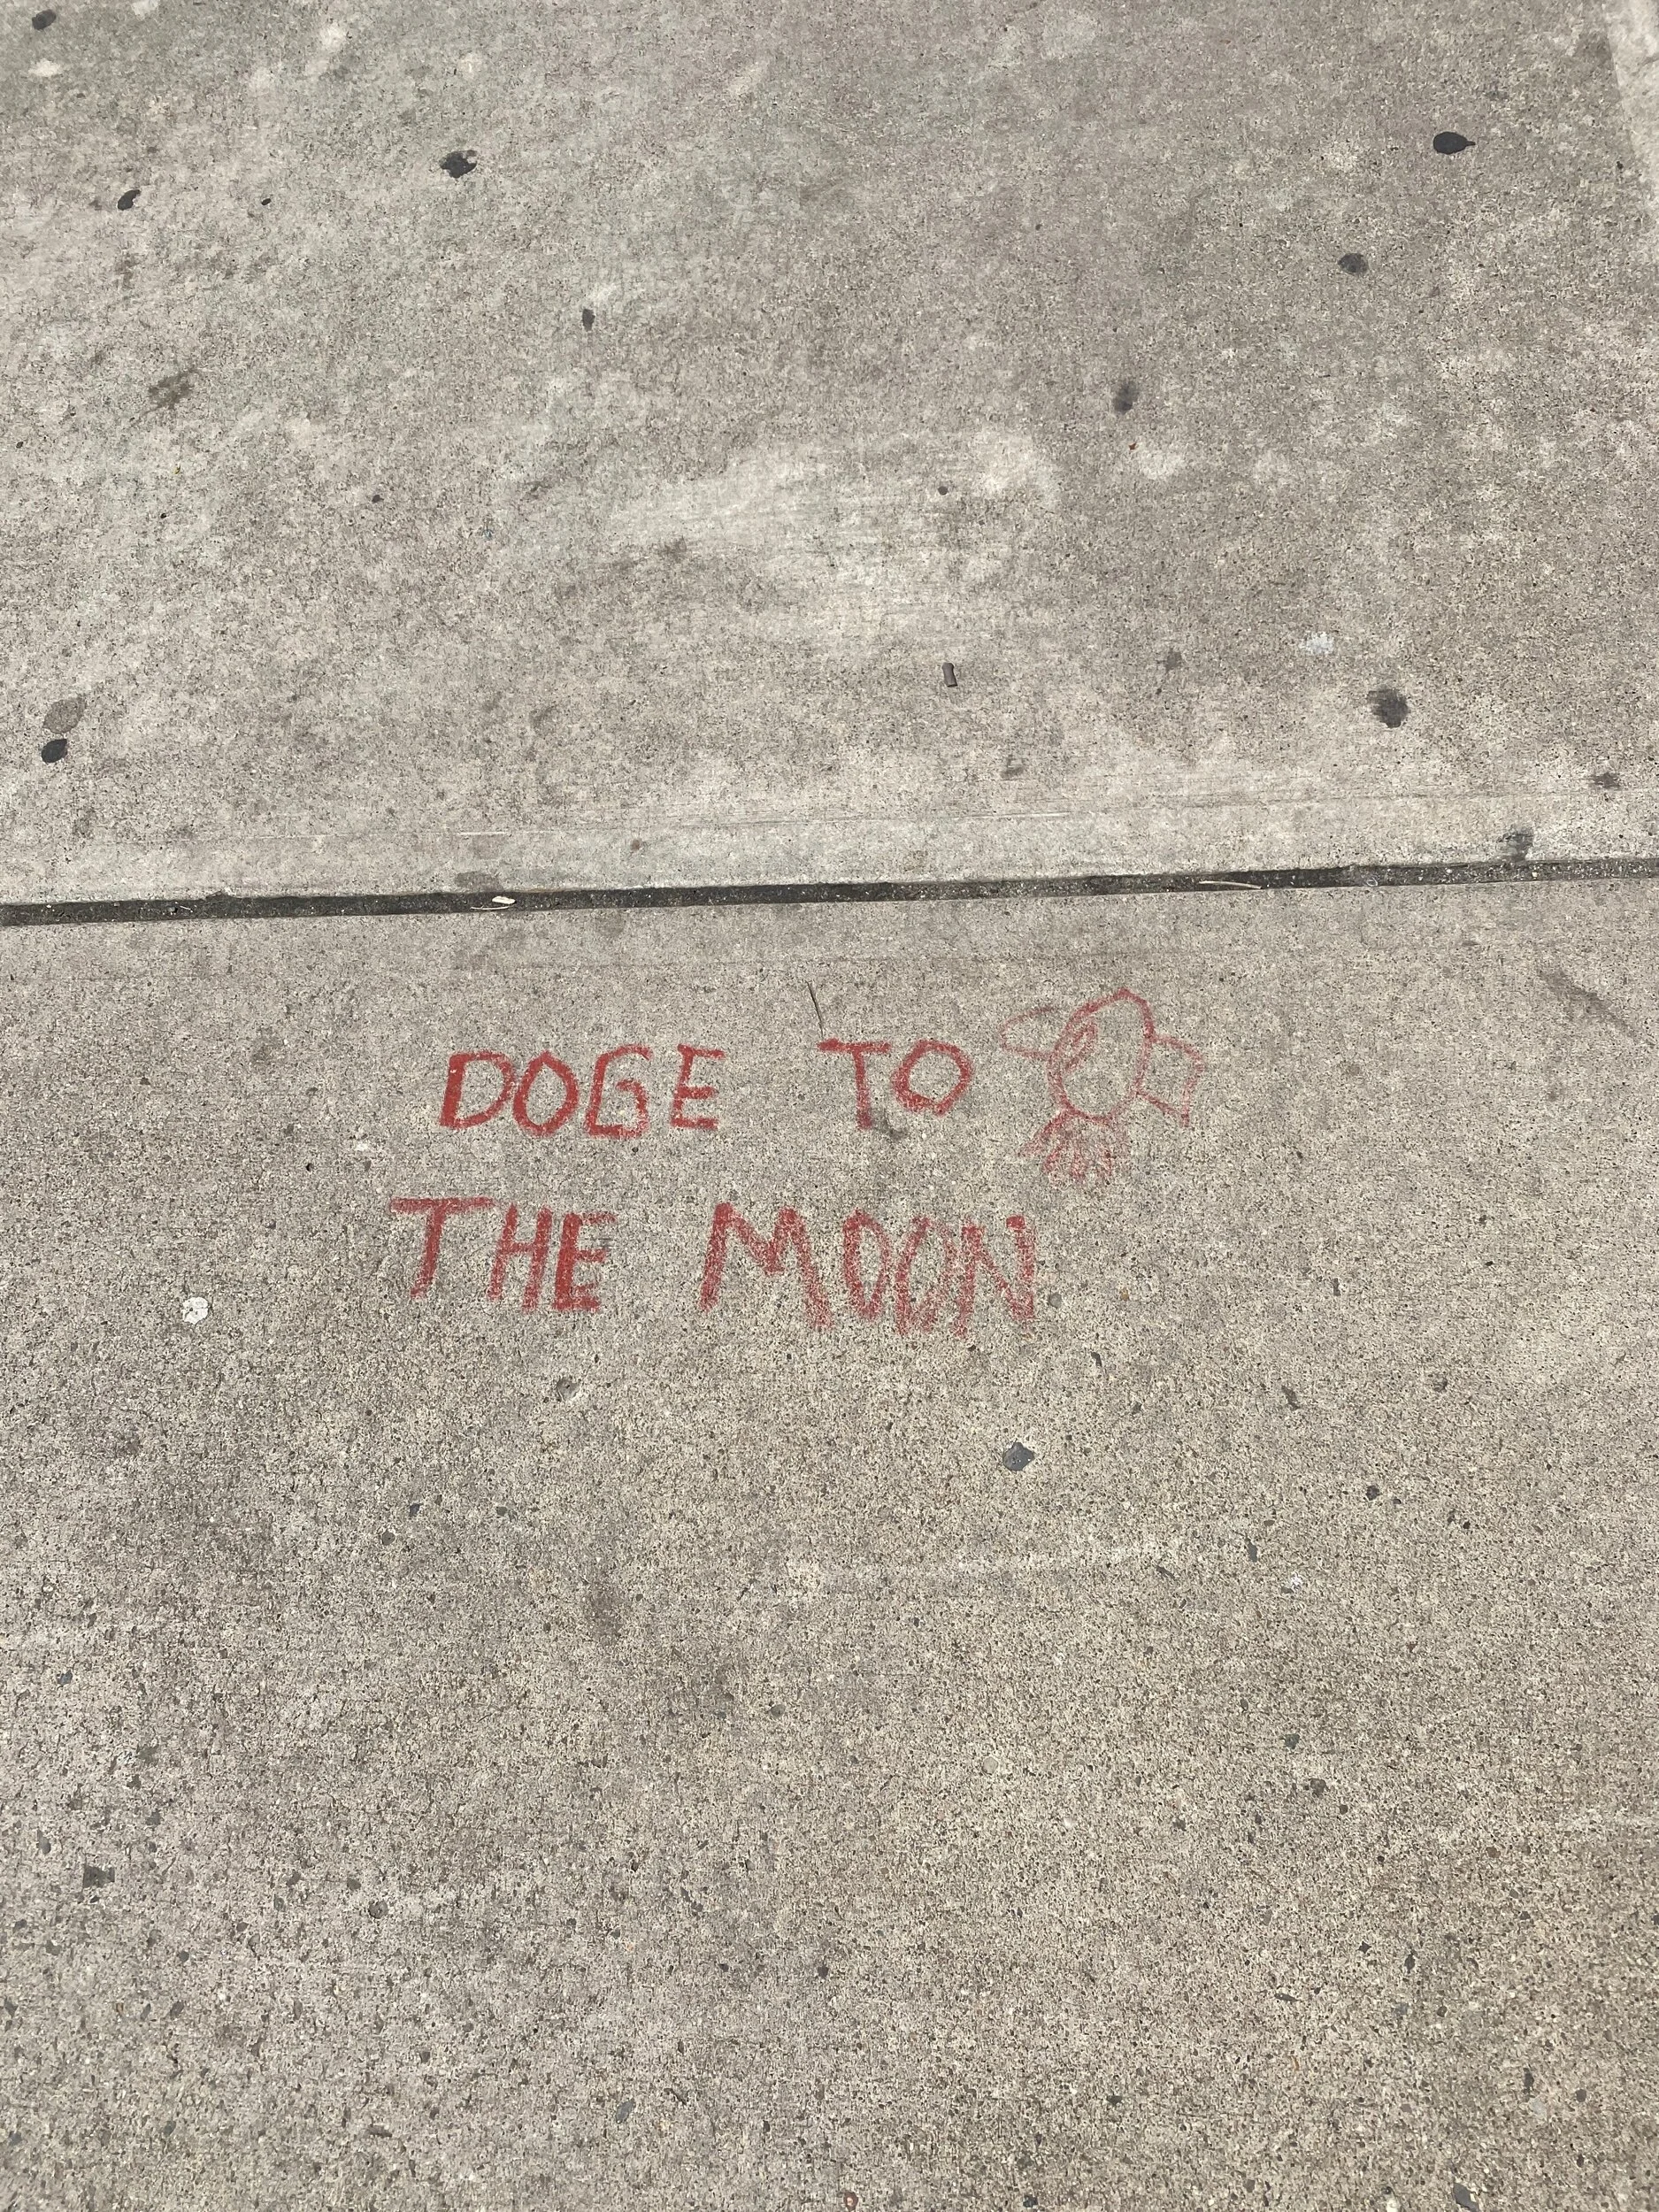 DOGE TO
THE MOON